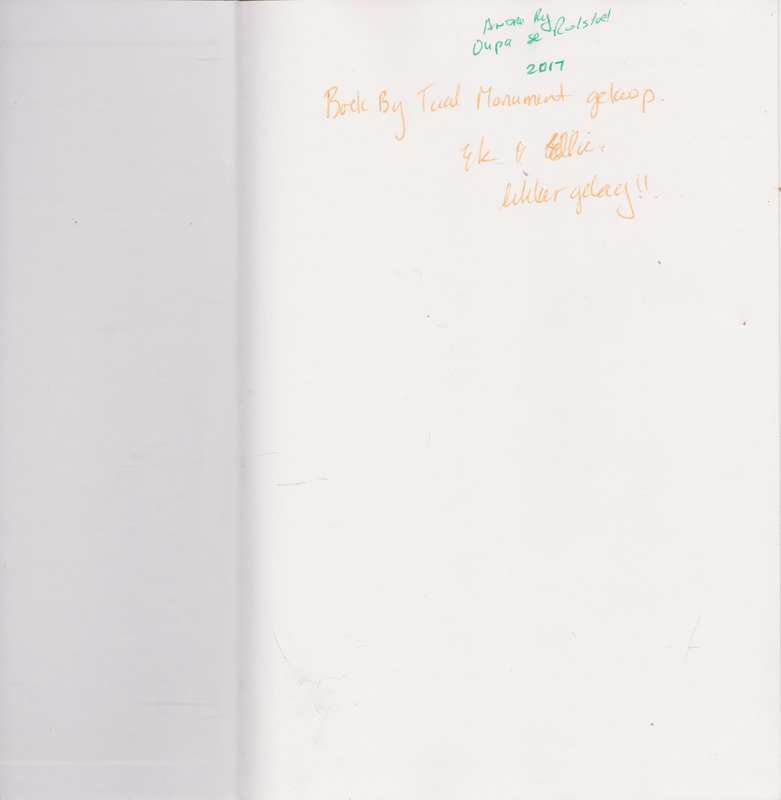 Ry
Oupa se Rolstoel
2017
Boek By Taal Monument gekoop.
Ek &
lekker gelag!!